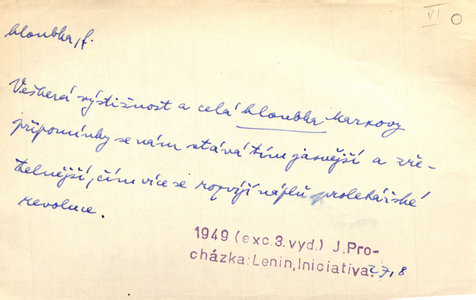 VI O
hloubka, f.
Veškerá výstižnost a celá hloubka Marxovy
připomínky se nám stává tím jasnější a zře-
telnější, čím více se rozvíjí náplň proletářské
revoluce.
1949 (exc.3.vyd.) J.Pro-
cházka:Lenin,Iniciativa. 2,7,8